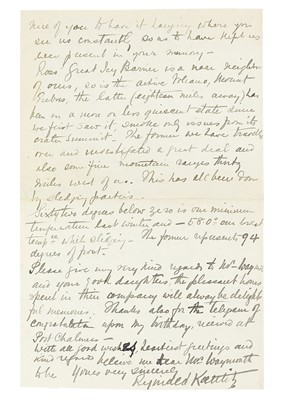 nice of you to have it hanging where you
see us constantly, so as to have kept us
ever present in your memory —
Ross' Great Icy Barrier is a near neighbor
of ours, so is the active Volcano, Mount
Erebus, the latter (eighteen miles away) has
been in a more or less quiescent state since
we first saw it, smoke only issues from its
crater summit. The former we have travelled
over and investigated a great deal and
also some fine mountain ranges thirty
miles west of us. This has all been done
by sledging parties.
Sixty two degrees below zero is our minimum
temperature last winter and − 58.0° our lowest
tempre while sledging — The former represents 94
degrees of frost.
Please give my very kind regards to Mrs
and your good daughters, the pleasant hours
spent in their company will always be delight-
ful memories. Thanks also for the telegram of
congratulation upon my birthday, received at
Port Chalmers —
With all good wishes, heartiest greetings and
kind regard believe me dear Mr Waymouth
to be Yours very sincerely
Reginald Koettlitz